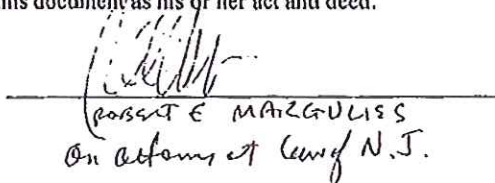 this document as his or her act and deed.
ROBERT E MARGULIES
An attorney at law of N.J.